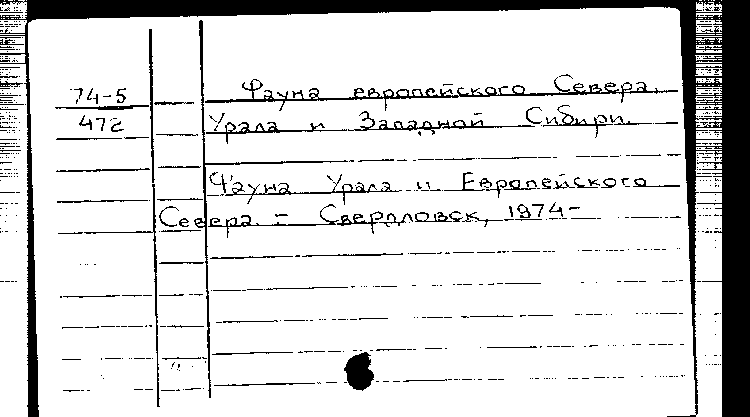 74-5 Фауна европейского Севера.
472 Урала и Западной Сибири.
Фауна Урала и Европейского
Севера. = Свердловск, 1974-